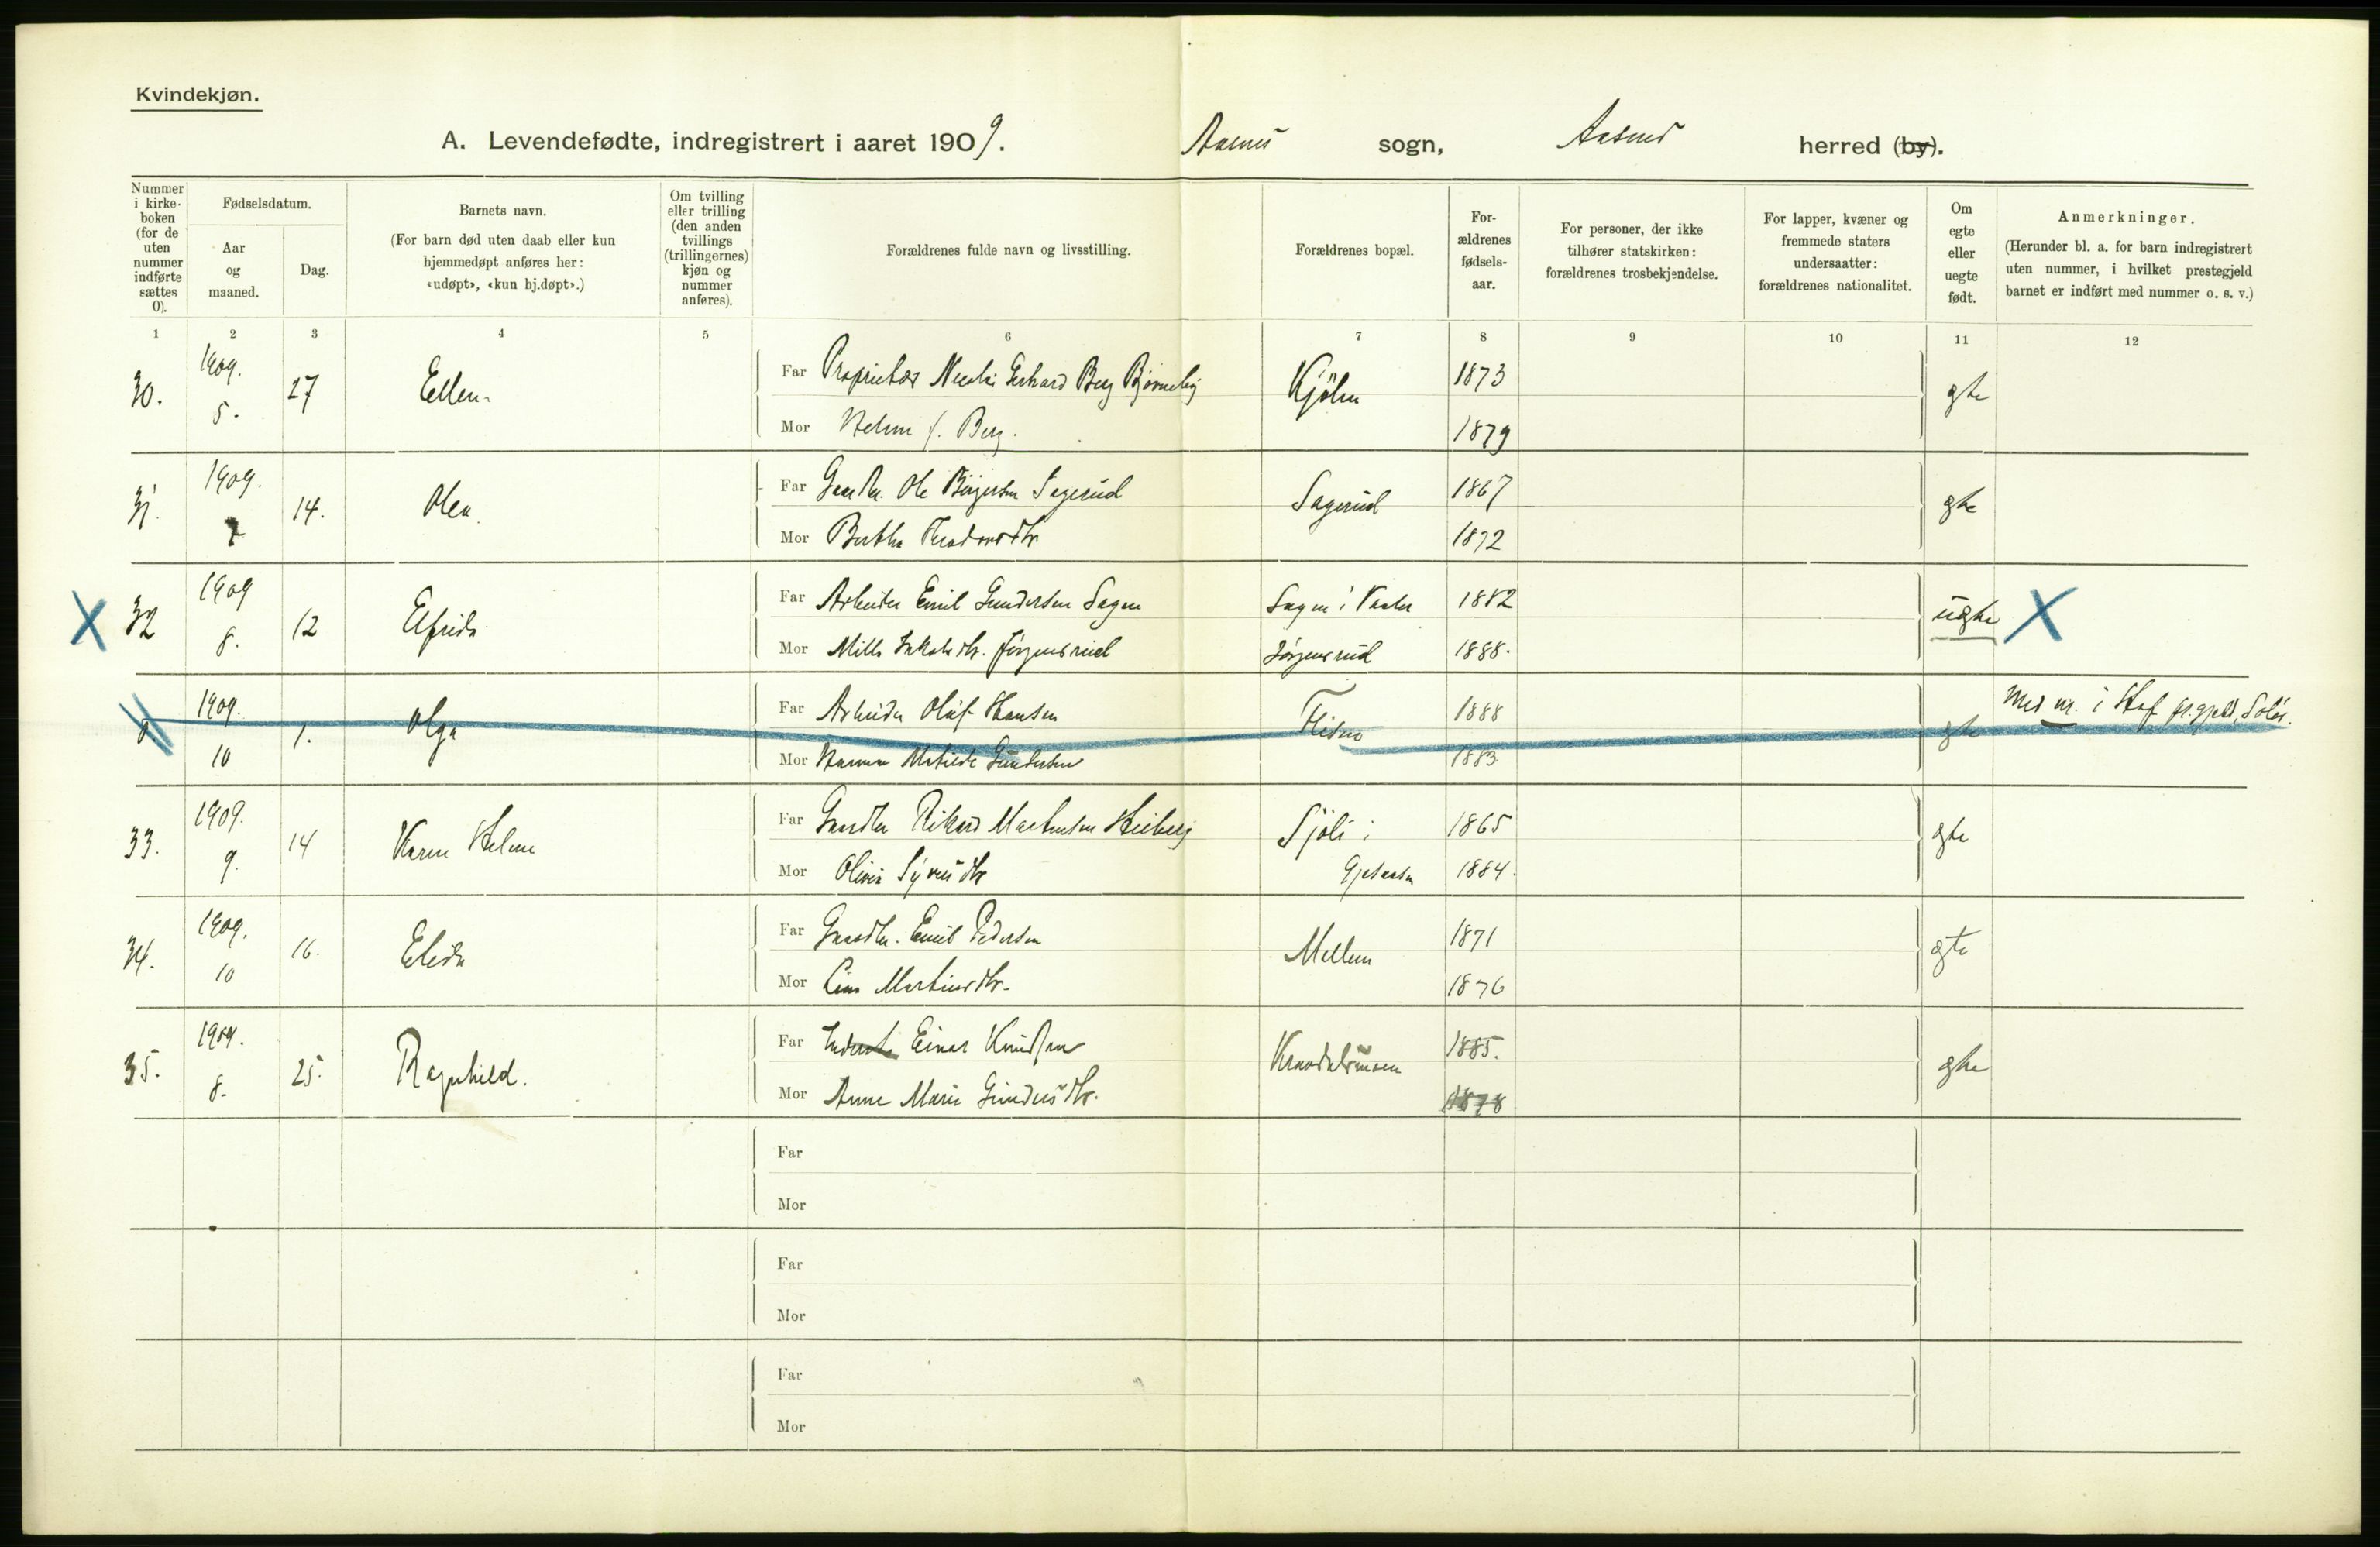 Kvindekjøn.
A. Levendefødte, indregistrert i aaret 1909. Aasnes sogn, Aasnes herred (by).
Nummer i kirke-boken (for de uten nummer indførte sættes 0).
Fødselsdatum.
Aar og maaned.
Dag.
Barnets navn.
(For barn død uten daab eller kun hjemmedøpt anføres her: «udøpt», «kun hj.døpt».)
Om tvilling eller trilling (den anden tvillings (trillingernes) kjøn og nummer anføres).
Forældrenes fulde navn og livsstilling.
Forældrenes bopæl.
For-ældrenes fødsels-aar.
For personer, der ikke tilhører statskirken: forældrenes trosbekjendelse.
For lapper, kvæner og fremmede staters undersaatter: forældrenes nationalitet.
Om egte eller uegte født.
Anmerkninger.
(Herunder bl. a. for barn indregistrert uten nummer, i hvilket prestegjeld barnet er indført med nummer o. s. v.)
1 2 3 4 5 6 7 8 9 10 11 12
30. 1909. 5. 27 Ellen
Far Proprietær Nicolai Gerhard Berg Bjørneby Kjölen 1873 gte
Mor Helene f. Berg. 1879
31. 1909. 7 14. Olea
Far Gaardbr. Ole Börgersen Sagerud Sagerud 1867 gte
Mor Berthe Theodorsdtr 1872
X 32 1909 8. 12 Elfrida
Far Arbeider Emil Gundersen Sagen Sagen i Vaaler 1882 ugte X
Mor Milla Jakobsdtr. Jørgensrud Jørgensrud 1888.
0 1909. 10 1. Olga
Far Arbeider Olaf Hansen Flisen 1888 gte Med nr. i Hof pr.gjeld, Solør.
Mor Hanna Matilde Gundersen 1883
33. 1909. 9. 14 Karen Helene
Far Gaardbr Rikard Martinsen Heiberg Sjöli i 1865 gte
Mor Olivia Syversdtr Gjesaasen 1884.
34. 1909. 10 16. Elida
Far Gaardbr. Emil Pedersen Mellem 1871 gte
Mor Lina Martinsdtr. 1876
35. 1909. 8. 25. Ragnhild.
Far Einar Knudsen 1885. gte
Mor Anne Marie Gundersdtr. 1878
Far
Mor
Far
Mor
Far
Mor